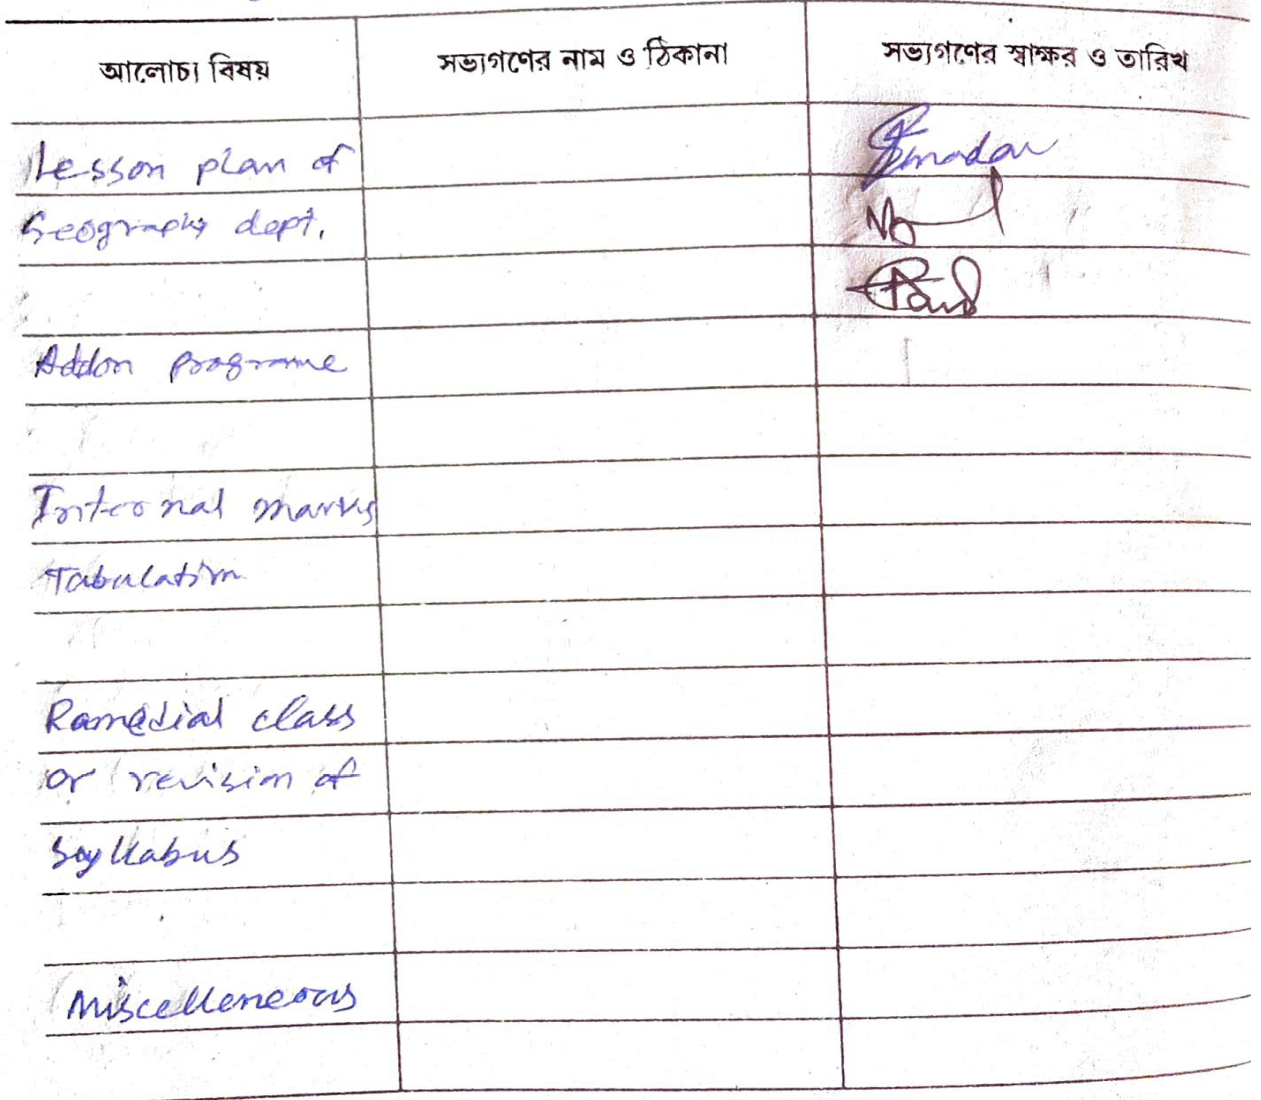 আলোচ্য বিষয় সভ্যগণের নাম ও ঠিকানা সভ্যগণের স্বাক্ষর ও তারিখ
Lesson plan of
Geography dept.
Addon programe
Internal marks
Tabulation
Ramedial class
or revision of
Syllabus
Miscelleneous